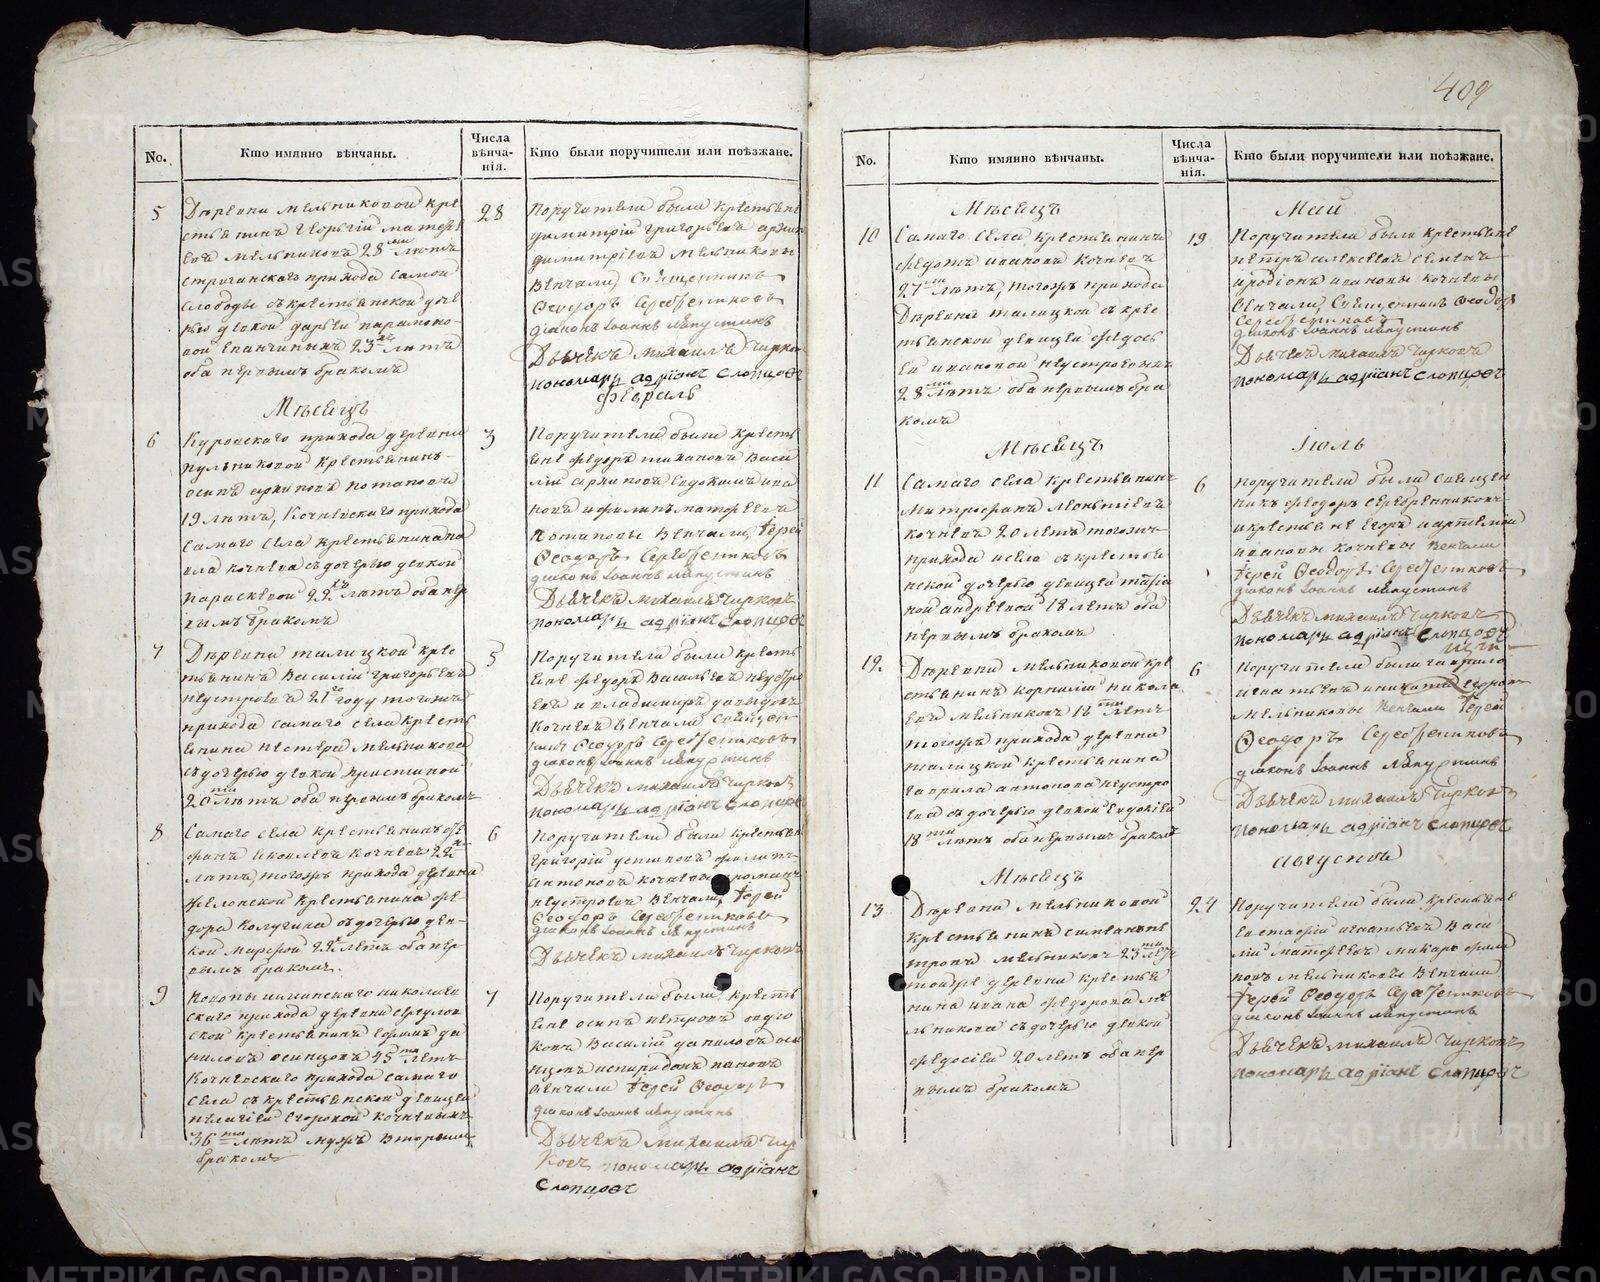 409
No.
Кто имянно вѣнчаны.
Числа
вѣнча-
нія.
Кто были поручители или поѣзжане.
5
Деревни Мельниковой кре
стьянинъ Георгій Матвѣ
евъ Мельниковъ 28ми лѣтъ
стриганскаго прихода самой
слободы съ крестьянской доче
рью девкой Дарьей Парамоно
вой Епанчиныхъ 23хъ лѣтъ
оба первымъ бракомъ
28
Поручители были крестьяне
Димитрій Григорьевъ
Димитріевъ Мельниковы
Венчали, Священникъ
Ѳеодоръ Серебренниковъ
діаконъ Іоаннъ Лапустинъ
Дьячекъ Михаилъ Чирковъ
пономарь Адріанъ Слопцовъ
Мѣсяцъ
Февраль
6
Куровскаго прихода деревни
Пульниковой крестьянинъ
Осипъ Архиповъ Потаповъ
19 лѣтъ, Кочневскаго прихода
самаго села крестьянина Па
вла Кочнева съ дочерью девкой
Парасковой 22хъ лѣтъ оба пер
вымъ бракомъ
3
Поручители были крестья
не Федоръ Васи
лій Архиповъ Евдокимъ Ива
новъ и Филипъ Матфеевъ
Потаповы Венчали, Іерей
Ѳеодоръ Серебренниковъ
діаконъ Іоаннъ Лапустинъ
Дьячекъ Михаилъ Чирковъ
пономарь Адріанъ Слопцовъ
7
Деревни Талицкой крес
тьянинъ Василій Григорьевъ
Неустроевъ 21го году тогожъ
прихода самаго села кресть
янина Нестера Мельникова
съ дочерью девкой Христиной
20ти лѣтъ оба первымъ бракомъ
5
Поручители были кресть
яне Федоръ Васильевъ Неустро
евъ и Владимиръ Давыдовъ
Кочневъ Венчали Священ
никъ Ѳеодоръ Серебренниковъ
діаконъ Іоаннъ Лапустинъ
Дьячекъ Михаилъ Чирковъ
пономарь Адріанъ Слопцовъ
8
Самаго села крестьянинъ Сте
фанъ Яковлевъ Кочневъ 22хъ
лѣтъ, тогожъ прихода деревни
крестьянина Фе
дора Калугина съ дочерью дев-
кой Марфой 22хъ лѣтъ оба пер
вымъ бракомъ.
6
Поручители были крестьяне
Григорій Устиновъ Филипъ
Антоновъ Кочневы Романъ
Неустроевъ Венчали, Іерей
Ѳеодоръ Серебренниковъ
діаконъ Іоаннъ Лапустинъ
Дьячекъ Михаилъ Чирковъ
9
Николаев
скаго прихода деревни
ской крестьянинъ Ефимъ Да
ниловъ Осинцовъ 45ти лѣтъ
Кочневскаго прихода самаго
села съ крестьянской девицей
Пелагіей Егоровой Кочневыхъ
36ти лѣтъ мужъ вторымъ
бракомъ
7
Поручители были, кресть
яне Осипъ Петровъ
Василій Даниловъ Оси
нцовъ Испиридонъ Пановъ
Венчали Іерей Ѳеодоръ
діаконъ Іоаннъ Лапустинъ
Дьячекъ Михаилъ Чир
ковъ пономарь Адріанъ
Слопцовъ
No.
Кто имянно вѣнчаны.
Числа
вѣнча-
нія.
Кто были поручители или поѣзжане.
Мѣсяцъ
Май
10
Самаго села крестьянинъ
Федотъ Ивановъ Кочневъ
27ми лѣтъ, тогожъ прихода
Деревни Талицкой съ крес
тьянской девицей Федось
ей Ивановой Неустроевыхъ
28ми лѣтъ оба первымъ бра
комъ
19
Поручители были крестьяне
Петръ Алексеевъ Семенъ
Иродіонъ Ивановы Кочневы
Венчали, Священникъ Ѳеодоръ
Серебренниковъ
діаконъ Іоаннъ Лапустинъ
Дьячекъ Михаилъ Чирковъ
пономарь Адріанъ Слопцовъ
Мѣсяцъ
Іюль
11
Самаго села крестьянинъ
Митрофанъ Леонтіевъ
Кочневъ 20 лѣтъ тогожъ
прихода и села съ крестья
нской дочерью девицей Таісіе
ной Андреевой 18 лѣтъ оба
первымъ бракомъ
6
Поручители были Священ
никъ Федоръ Серебренниковъ
и крестьяне Егоръ и Артемій
Ивановы Кочневы Венчали
Іерей Ѳеодоръ Серебренниковъ
діаконъ Іоаннъ Лапустинъ
Дьячекъ Михаилъ Чирковъ
пономарь Адріанъ Слопцовъ
12.
Деревни Мельниковой кре
стьянинъ Корнилій Никола
евъ Мельниковъ 18ти лѣтъ
тогожъ прихода деревни
Талицкой крестьянина
Гаврила Антонова Неустро
ева съ дочерью девкой Евдокіей
18ти лѣтъ оба первымъ бракомъ
6
Поручители были Гаврило
Игнатьевъ и Никита Егоровъ
Мельниковы Венчали Іерей
Ѳеодоръ Серебренниковъ
діаконъ Іоаннъ Лапустинъ
Дьячекъ Михаилъ Чирковъ
пономарь Адріанъ Слопцовъ
Мѣсяцъ
Августъ
13
Деревни Мельниковой
крестьянинъ Симеонъ Пе
тровъ Мельниковъ 23ти лѣтъ
тойже деревни крестья
нина Ивана Федорова Ме
льникова съ дочерью девкой
Федосіей 20 лѣтъ оба пер
вымъ бракомъ
24
Поручители были крестьяне
Евстафій Игнатьевъ Васи
лій Матфеевъ Макаръ Фили
повъ Мельниковы Венчали
Іерей Ѳеодоръ Серебренниковъ
діаконъ Іоаннъ Лапустинъ
Дьячекъ Михаилъ Чирковъ
пономарь Адріанъ Слопцовъ
METRIKI.GASO-URAL.RU